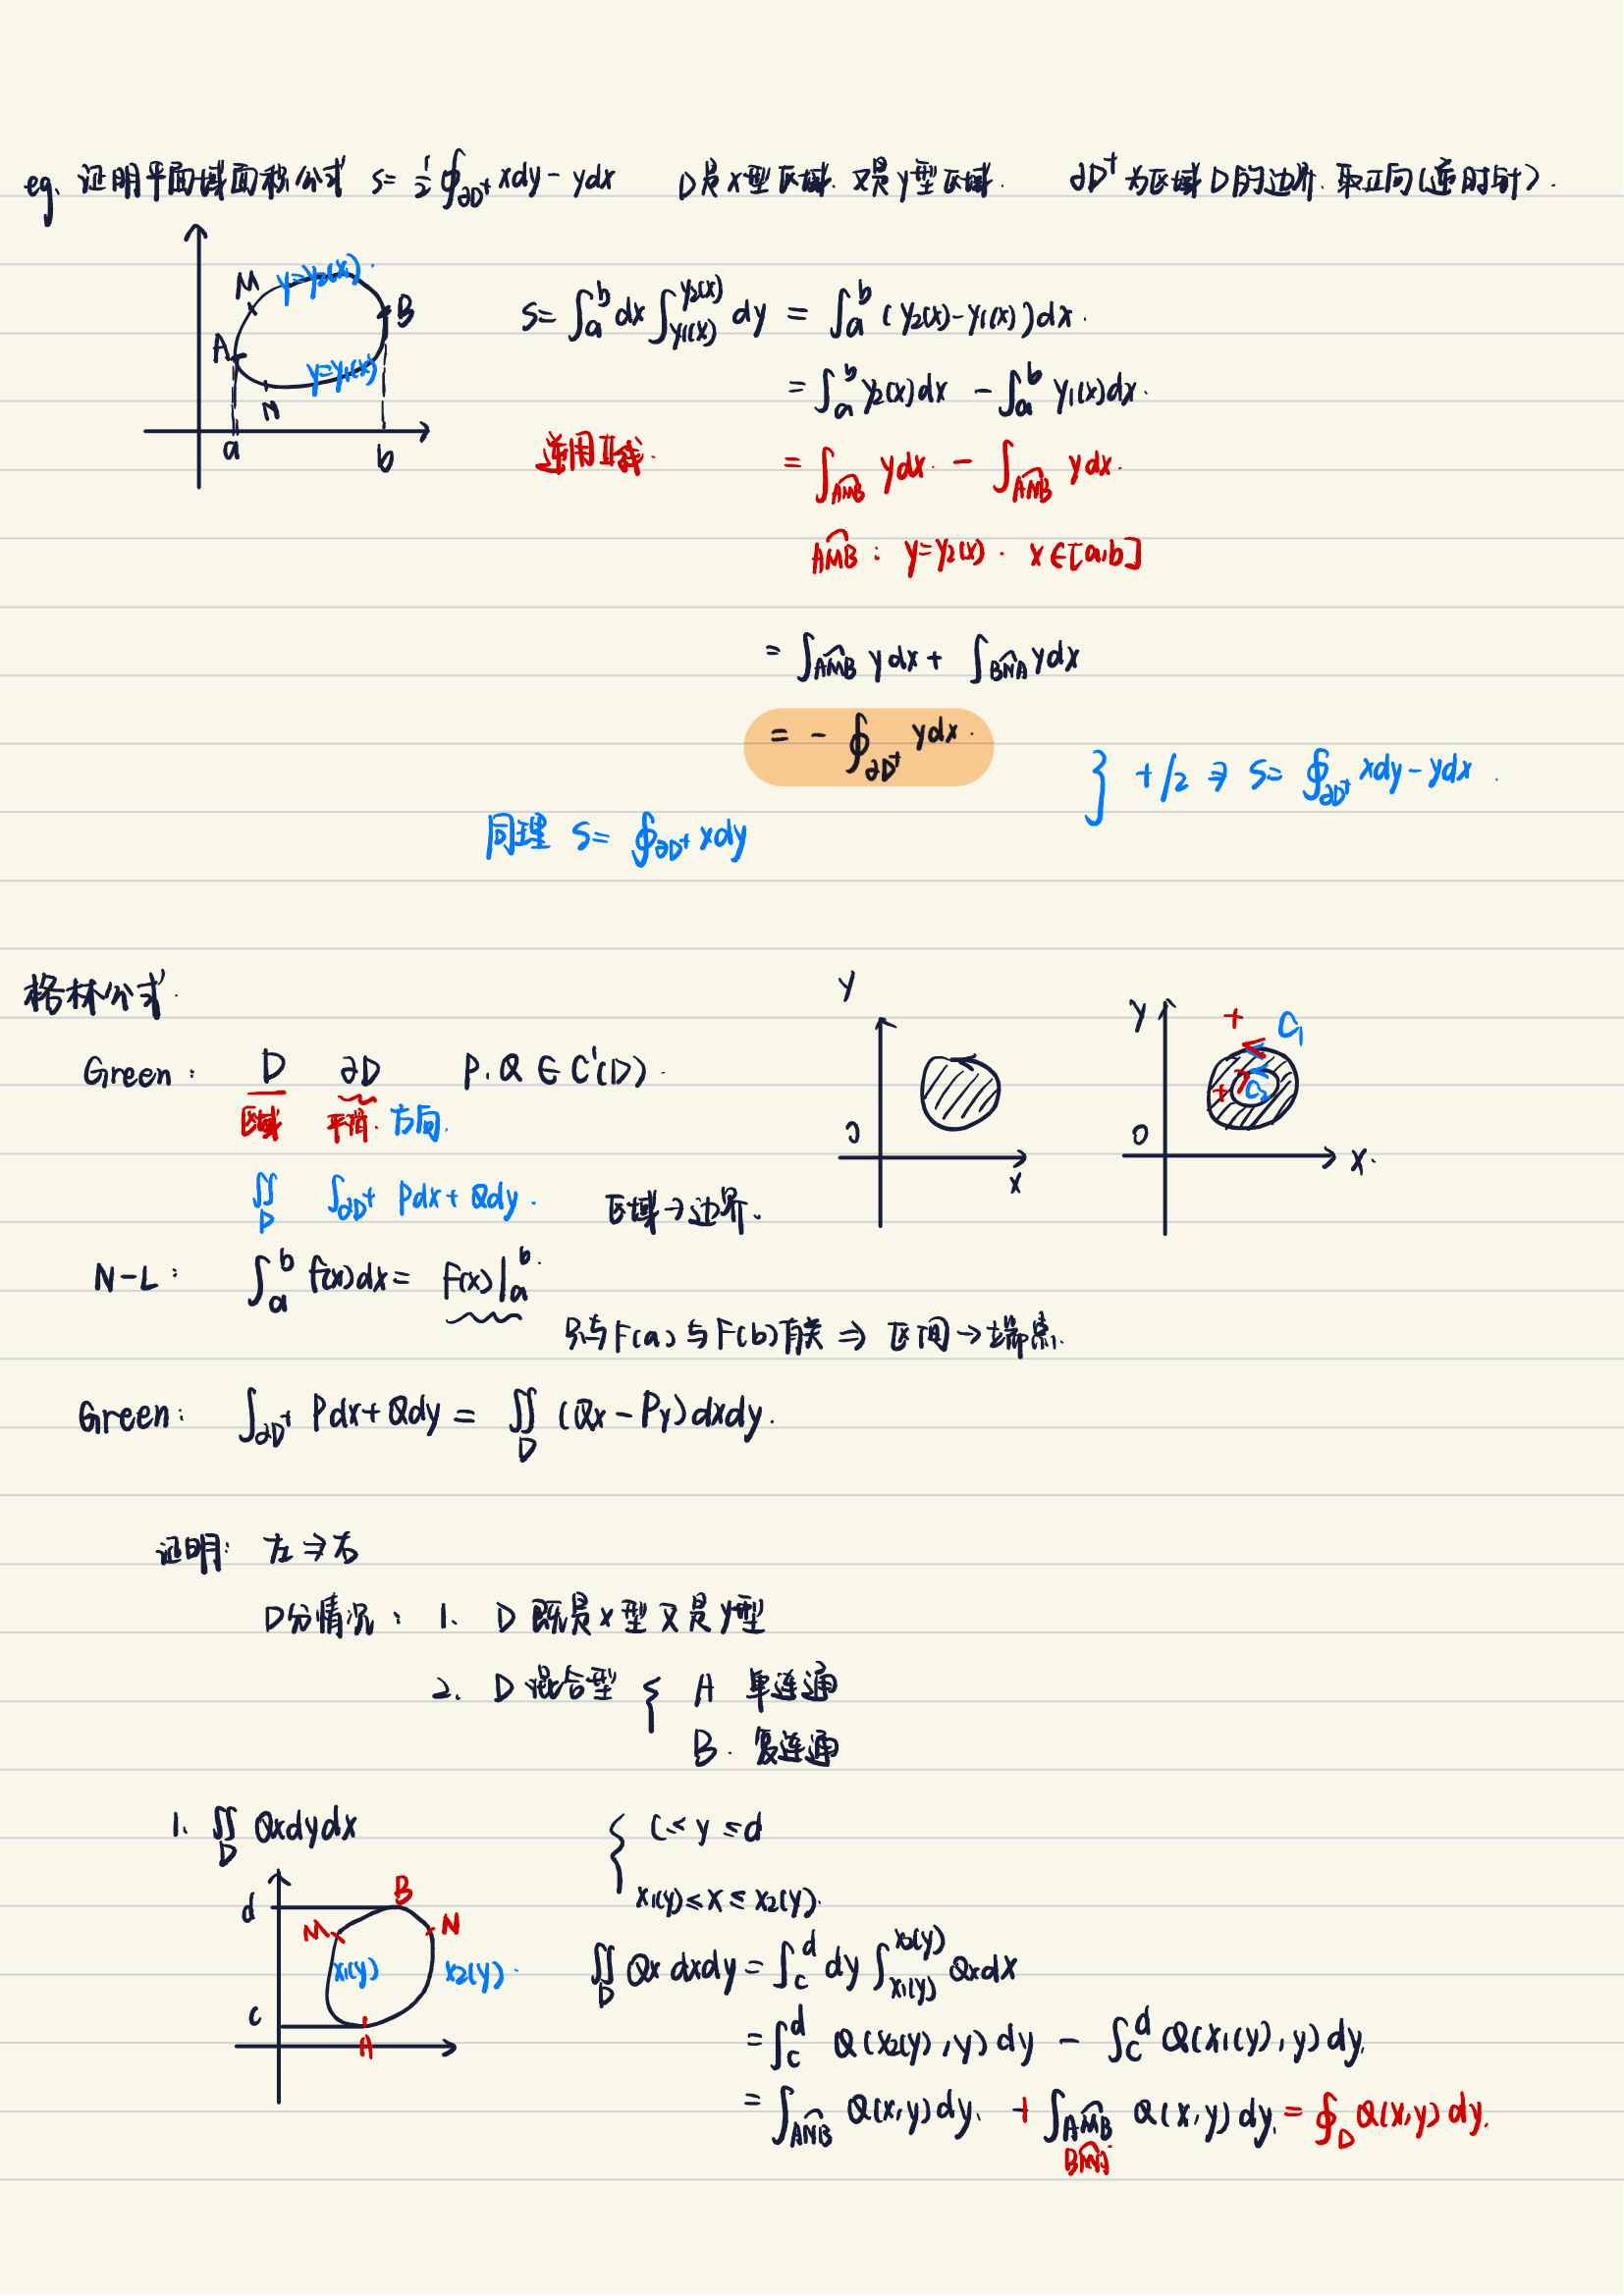 eg. 证明平面域面积公式 S= 1/2 ∮∂D⁺ xdy - ydx D是x型区域. 又是y型区域. ∂D⁺ 为区域D的边界. 取正向(逆时针).
M y=y₂(x).
B
A
y=y₁(x)
N
a b
S= ∫ₐᵇ dx ∫_{y₁(x)}^{y₂(x)} dy = ∫ₐᵇ (y₂(x)-y₁(x))dx.
= ∫ₐᵇ y₂(x)dx - ∫ₐᵇ y₁(x)dx.
= ∫_{AMB} ydx. - ∫_{ANB} ydx.
AMB : y=y₂(x). x∈[a,b]
= ∫_{AMB} ydx + ∫_{BNA} ydx
= - ∮∂D⁺ ydx.
} +/2 ⇒ S= ∮∂D⁺ xdy - ydx.
同理 S= ∮∂D⁺ xdy
格林公式.
Green: D ∂D P.Q ∈ C¹(D).
区域 平滑. 方向.
y
0
x
y + C₁
+ C₂
0
x.
∬_D ∫∂D⁺ Pdx + Qdy. 区域→边界.
N-L: ∫ₐᵇ f(x)dx = F(x)|ₐᵇ.
只与F(a)与F(b)有关 ⇒ 区间→端点.
Green: ∫∂D⁺ Pdx+Qdy = ∬_D (Qx - Py)dxdy.
证明: 左⇒右
D分情况: 1. D既是x型又是y型
2. D混合型 { A 单连通
B. 复连通
1. ∬_D Qxdydx { c≤y≤d
x₁(y)≤x≤x₂(y).
d B
M N
x₁(y) x₂(y).
c
A
∬_D Qx dxdy = ∫_c^d dy ∫_{x₁(y)}^{x₂(y)} Qxdx
= ∫_c^d Q(x₂(y),y)dy - ∫_c^d Q(x₁(y),y)dy.
= ∫_{ANB} Q(x,y)dy. + ∫_{AMB} Q(x,y)dy. = ∮_D Q(x,y)dy.
BMA